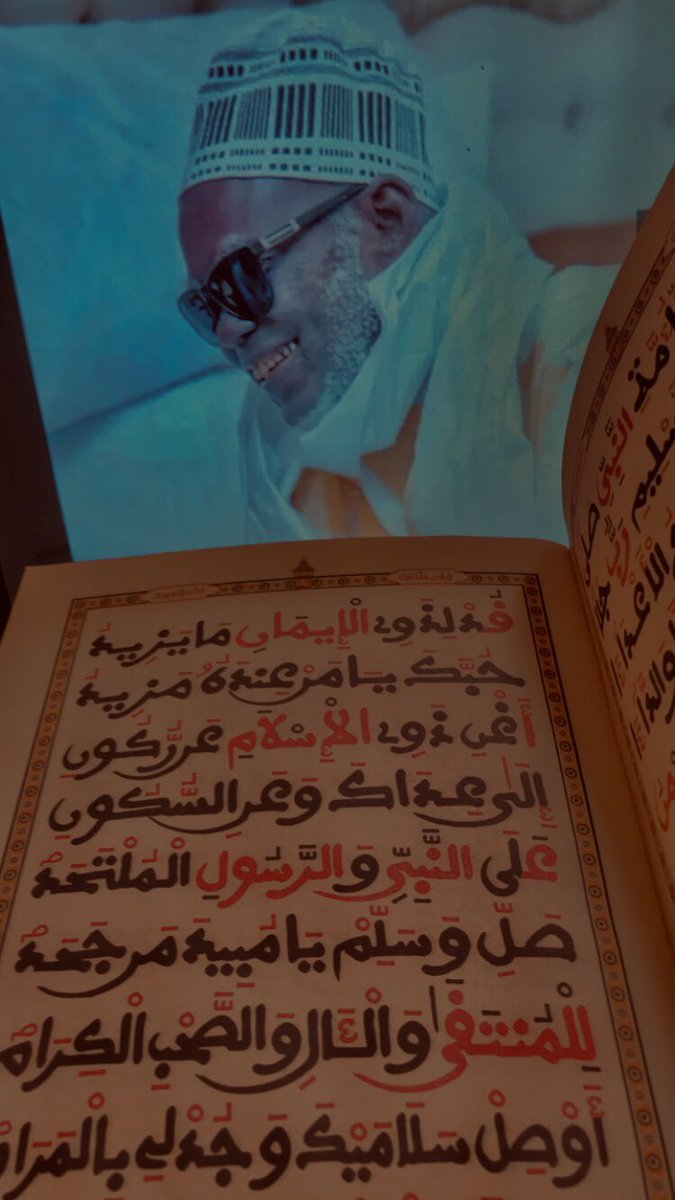 قُدْ لِذَوِي الْإِيمَانِ مَا يَزِيدُ
حُبَّكَ يَا مَنْ عِنْدَهُ مَزِيدُ
أَغْنِ ذَوِي الْإِسْلَامِ عَنْ رُكُونِ
إِلَى عِدَاكَ وَعَنِ السُّكُونِ
عَلَى النَّبِيِّ وَالرَّسُولِ الْمُلْتَحَدْ
صَلِّ وَسَلِّمْ يَا مُبِيدَ مَنْ جَحَدْ
لِلْمُنْتَقَى وَالْآلِ وَالصَّحْبِ الْكِرَامْ
أَوْصِلْ سَلَامَيْكَ وَجُدْ لِي بِالْمَرَامْ
النَّبِيِّ